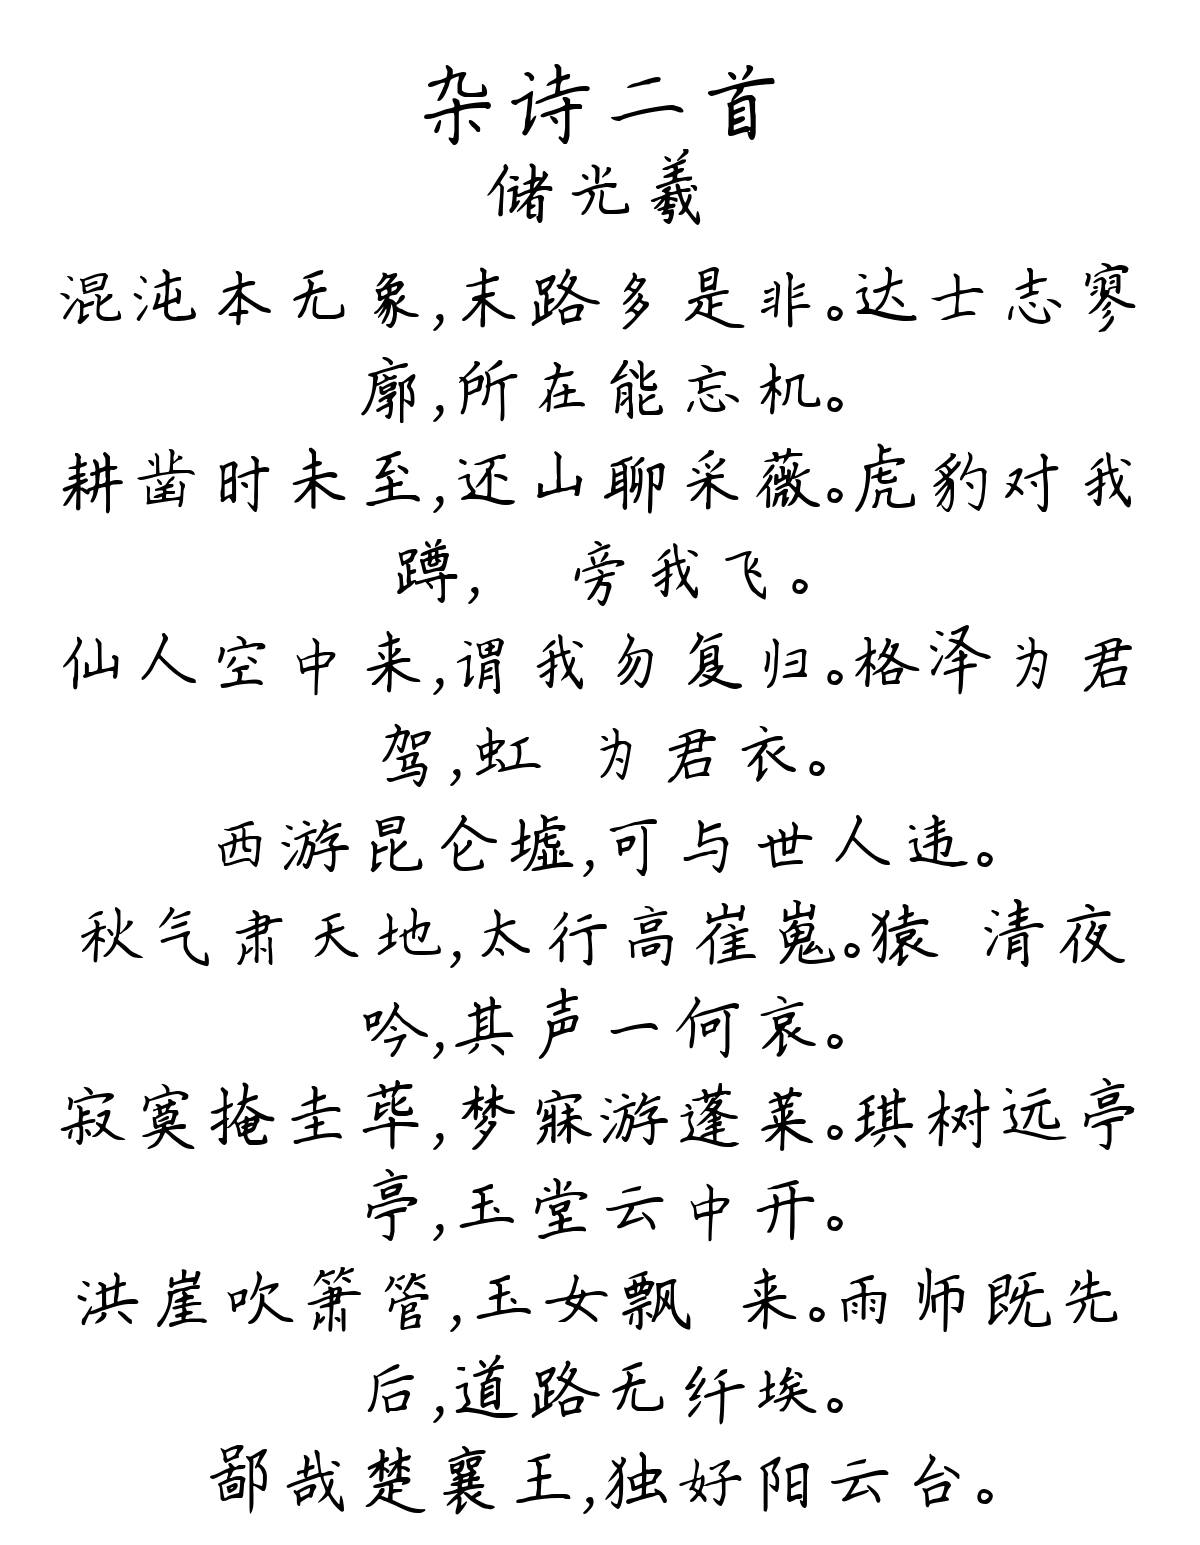 杂诗二首
储光羲
混沌本无象,末路多是非。达士志寥
廓,所在能忘机。
耕凿时未至,还山聊采薇。虎豹对我
蹲, 旁我飞。
仙人空中来,谓我勿复归。格泽为君
驾,虹 为君衣。
西游昆仑墟,可与世人违。
秋气肃天地,太行高崔嵬。猿 清夜
吟,其声一何哀。
寂寞掩圭荜,梦寐游蓬莱。琪树远亭
亭,玉堂云中开。
洪崖吹箫管,玉女飘 来。雨师既先
后,道路无纤埃。
鄙哉楚襄王,独好阳云台。